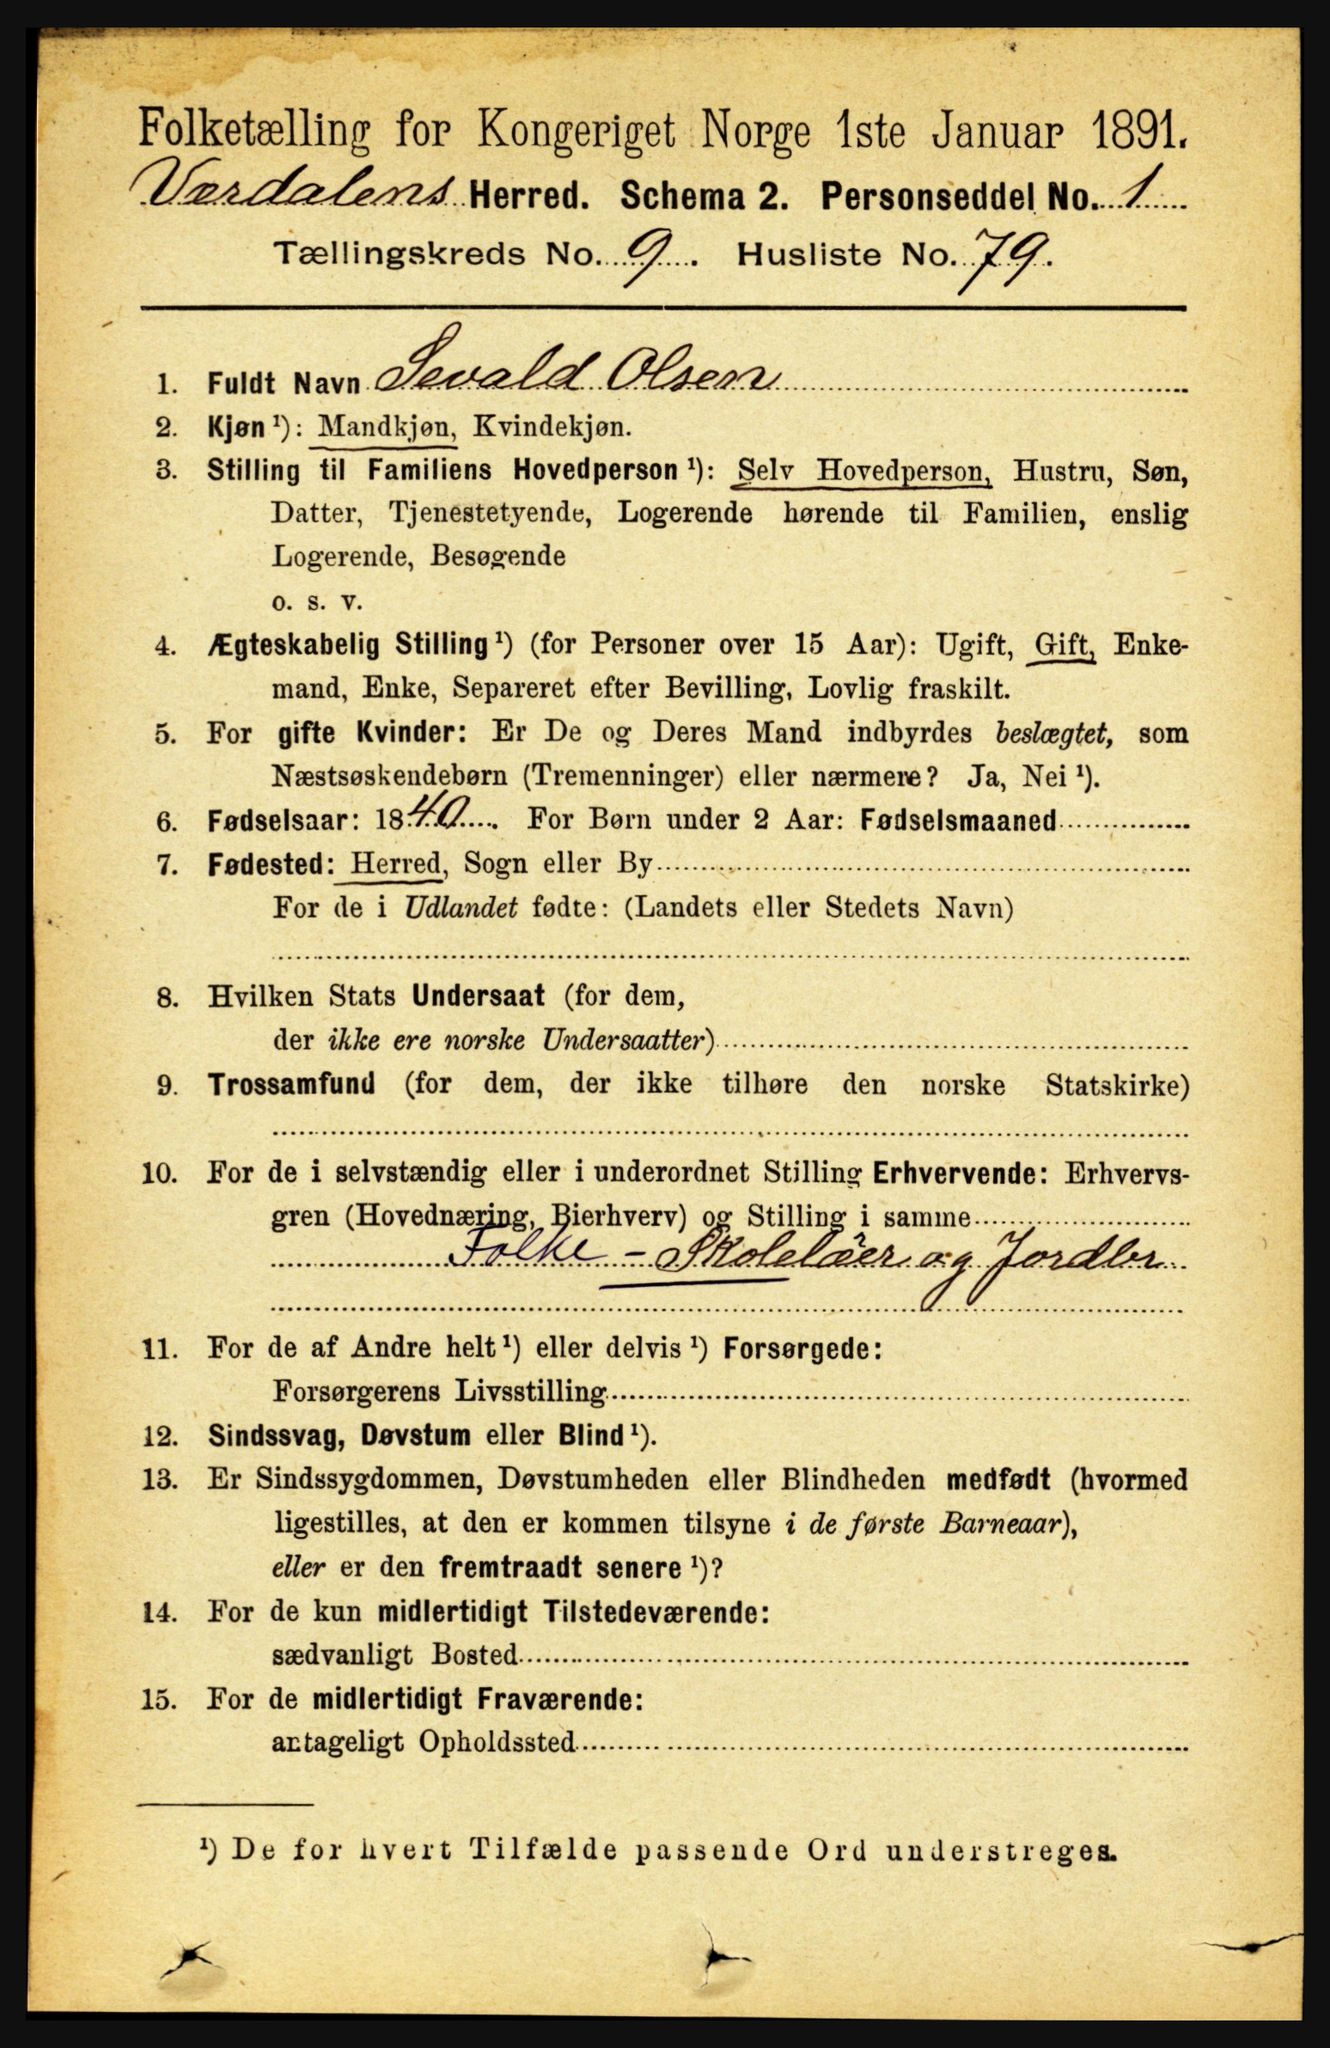 Folketælling for Kongeriget Norge 1ste Januar 1891.
Værdalens Herred. Schema 2. Personseddel No. 1
Tællingskreds No. 9. Husliste No. 79.
1. Fuldt Navn Sevald Olsen
2. Kjøn ¹): Mandkjøn, Kvindekjøn.
3. Stilling til Familiens Hovedperson ¹): Selv Hovedperson, Hustru, Søn,
Datter, Tjenestetyende, Logerende hørende til Familien, enslig
Logerende, Besøgende
o. s. v.
4. Ægteskabelig Stilling ¹) (for Personer over 15 Aar): Ugift, Gift, Enke-
mand, Enke, Separeret efter Bevilling, Lovlig fraskilt.
5. For gifte Kvinder: Er De og Deres Mand indbyrdes beslægtet, som
Næstsøskendebørn (Tremenninger) eller nærmere? Ja, Nei ¹).
6. Fødselsaar: 1840. For Børn under 2 Aar: Fødselsmaaned
7. Fødested: Herred, Sogn eller By
For de i Udlandet fødte: (Landets eller Stedets Navn)
8. Hvilken Stats Undersaat (for dem,
der ikke ere norske Undersaatter)
9. Trossamfund (for dem, der ikke tilhøre den norske Statskirke)
10. For de i selvstændig eller i underordnet Stilling Erhvervende: Erhvervs-
gren (Hovednæring, Bierhverv) og Stilling i samme
Folke - Skolelåer og Jordbr.
11. For de af Andre helt ¹) eller delvis ¹) Forsørgede:
Forsørgerens Livsstilling
12. Sindssvag, Døvstum eller Blind ¹).
13. Er Sindssygdommen, Døvstumheden eller Blindheden medfødt (hvormed
ligestilles, at den er kommen tilsyne i de første Barneaar),
eller er den fremtraadt senere ¹)?
14. For de kun midlertidigt Tilstedeværende:
sædvanligt Bosted
15. For de midlertidigt Fraværende:
antageligt Opholdssted
¹) De for hvert Tilfælde passende Ord understreges.